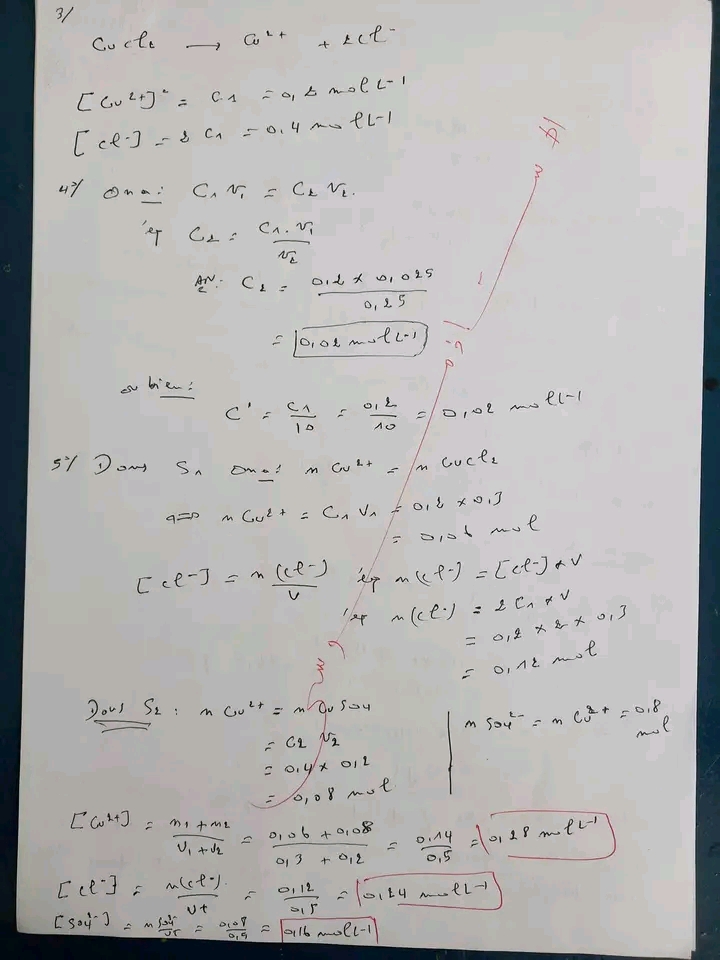 3/
CuCl2 → Cu2+ + 2Cl-
[Cu2+] = C1 = 0,2 mol L-1
[Cl-] = 2 C1 = 0,4 mol L-1
4°/ On a : C1 V1 = C2 V2.
C2 = C1 . V1 / V2
AN : C2 = 0,2 x 0,025 / 0,25
= 0,02 mol L-1
ou bien :
C' = C1 / 10 = 0,2 / 10 = 0,02 mol L-1
5°/ Dans S1 on a : n Cu2+ = n CuCl2
<=> n Cu2+ = C1 V1 = 0,2 x 0,3
= 0,06 mol
[Cl-] = n(Cl-) / V n(Cl-) = [Cl-] x V
n(Cl-) = 2 C1 x V
= 0,2 x 2 x 0,3
= 0,12 mol
Dans S2 : n Cu2+ = n CuSO4
= C2 V2
= 0,4 x 0,2
= 0,08 mol
n SO42- = n Cu2+ = 0,8
mol
[Cu2+] = n1 + n2 / V1 + V2 = 0,06 + 0,08 / 0,3 + 0,2 = 0,14 / 0,5 = 0,28 mol L-1
[Cl-] = n(Cl-) / Vt = 0,12 / 0,5 = 0,24 mol L-1
[SO42-] = n SO42- / Vt = 0,08 / 0,5 = 0,16 mol L-1